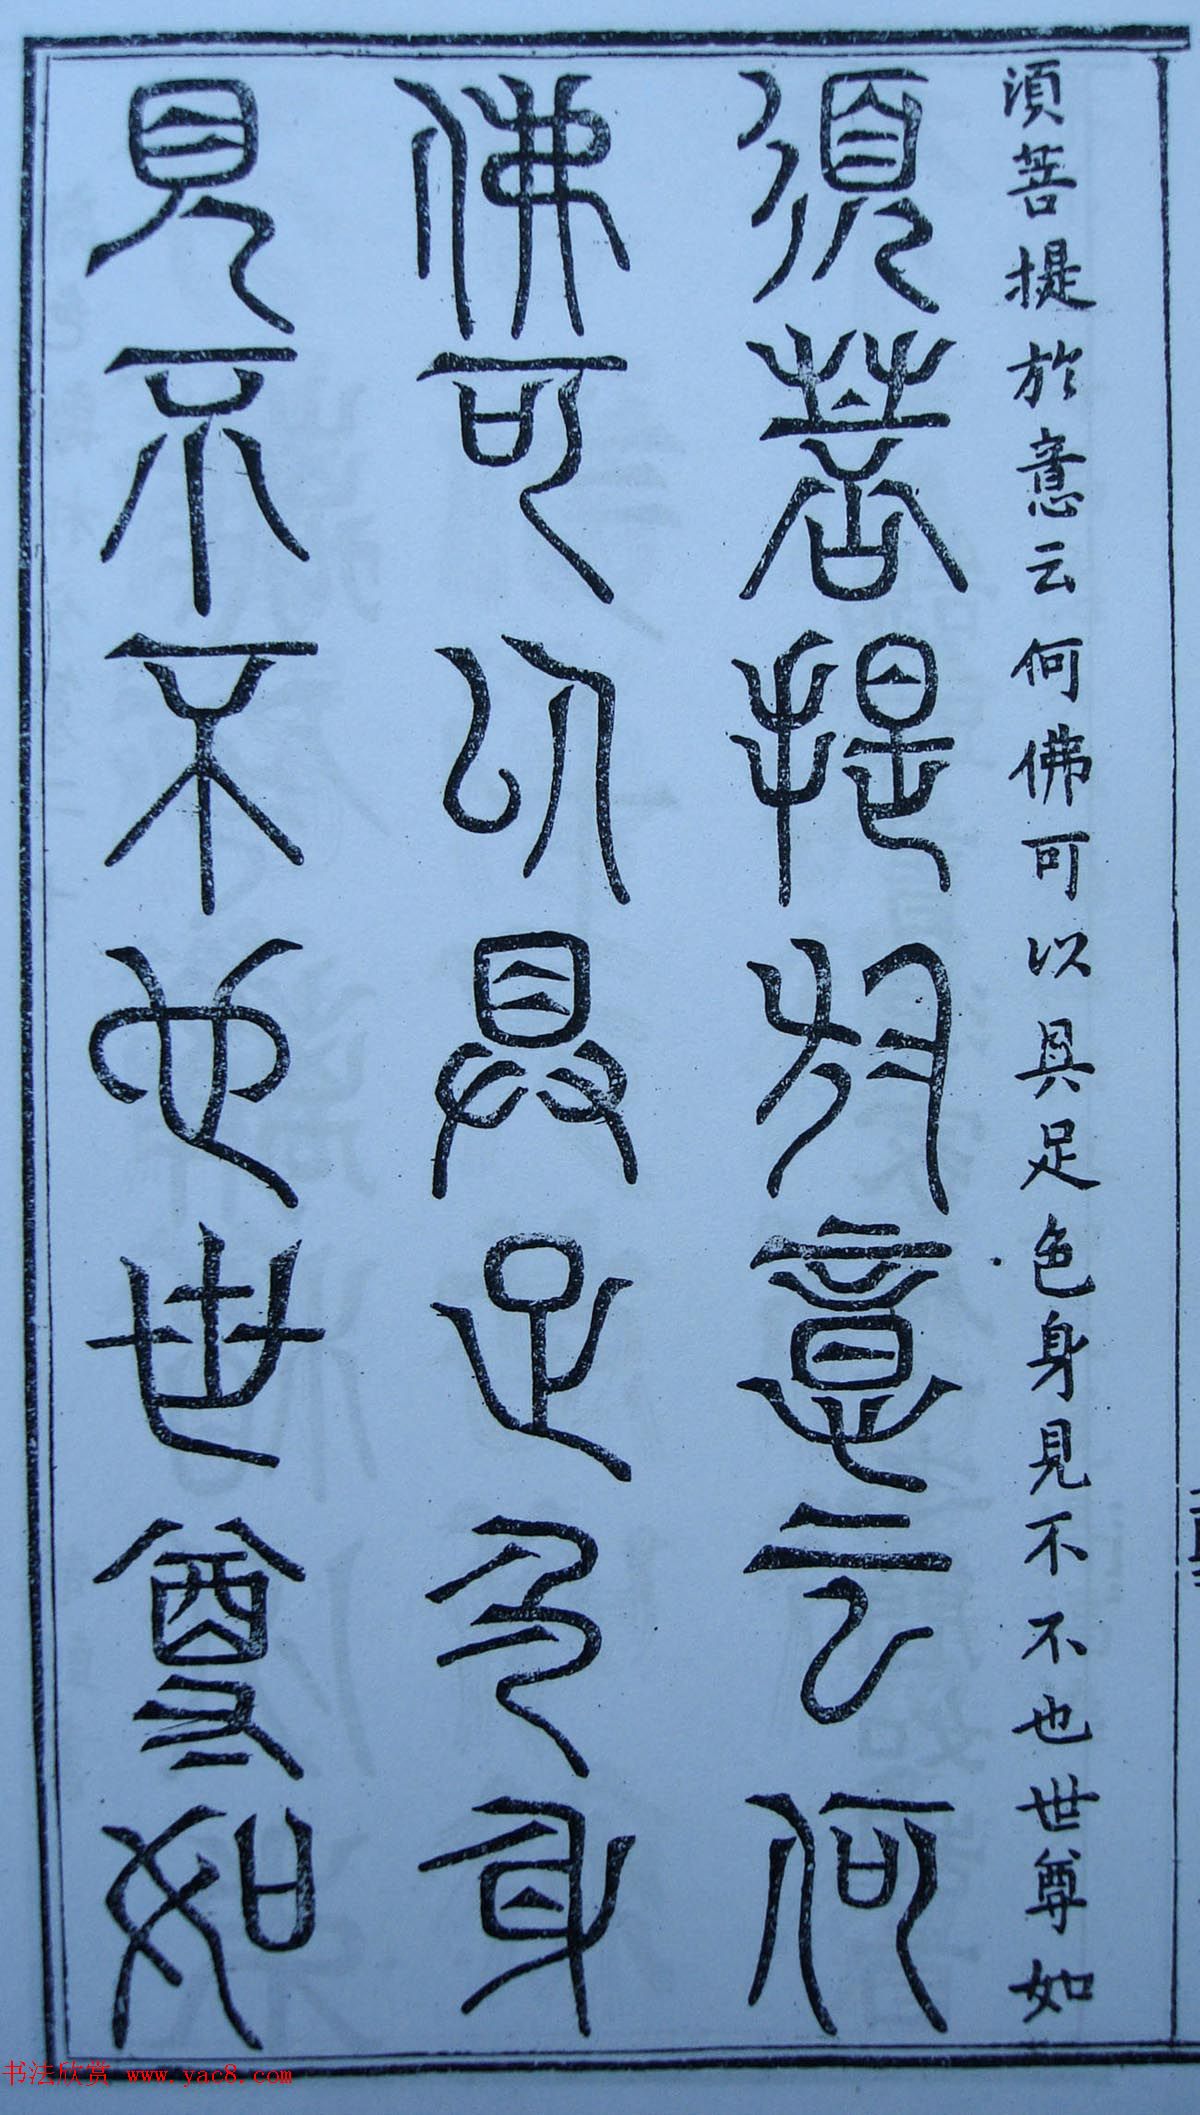 須菩提於意云何佛可以具足色身見不不也世尊如
須菩提於意云何
佛可以具足色身
見不不也世尊如
书法欣赏 www.yac8.com